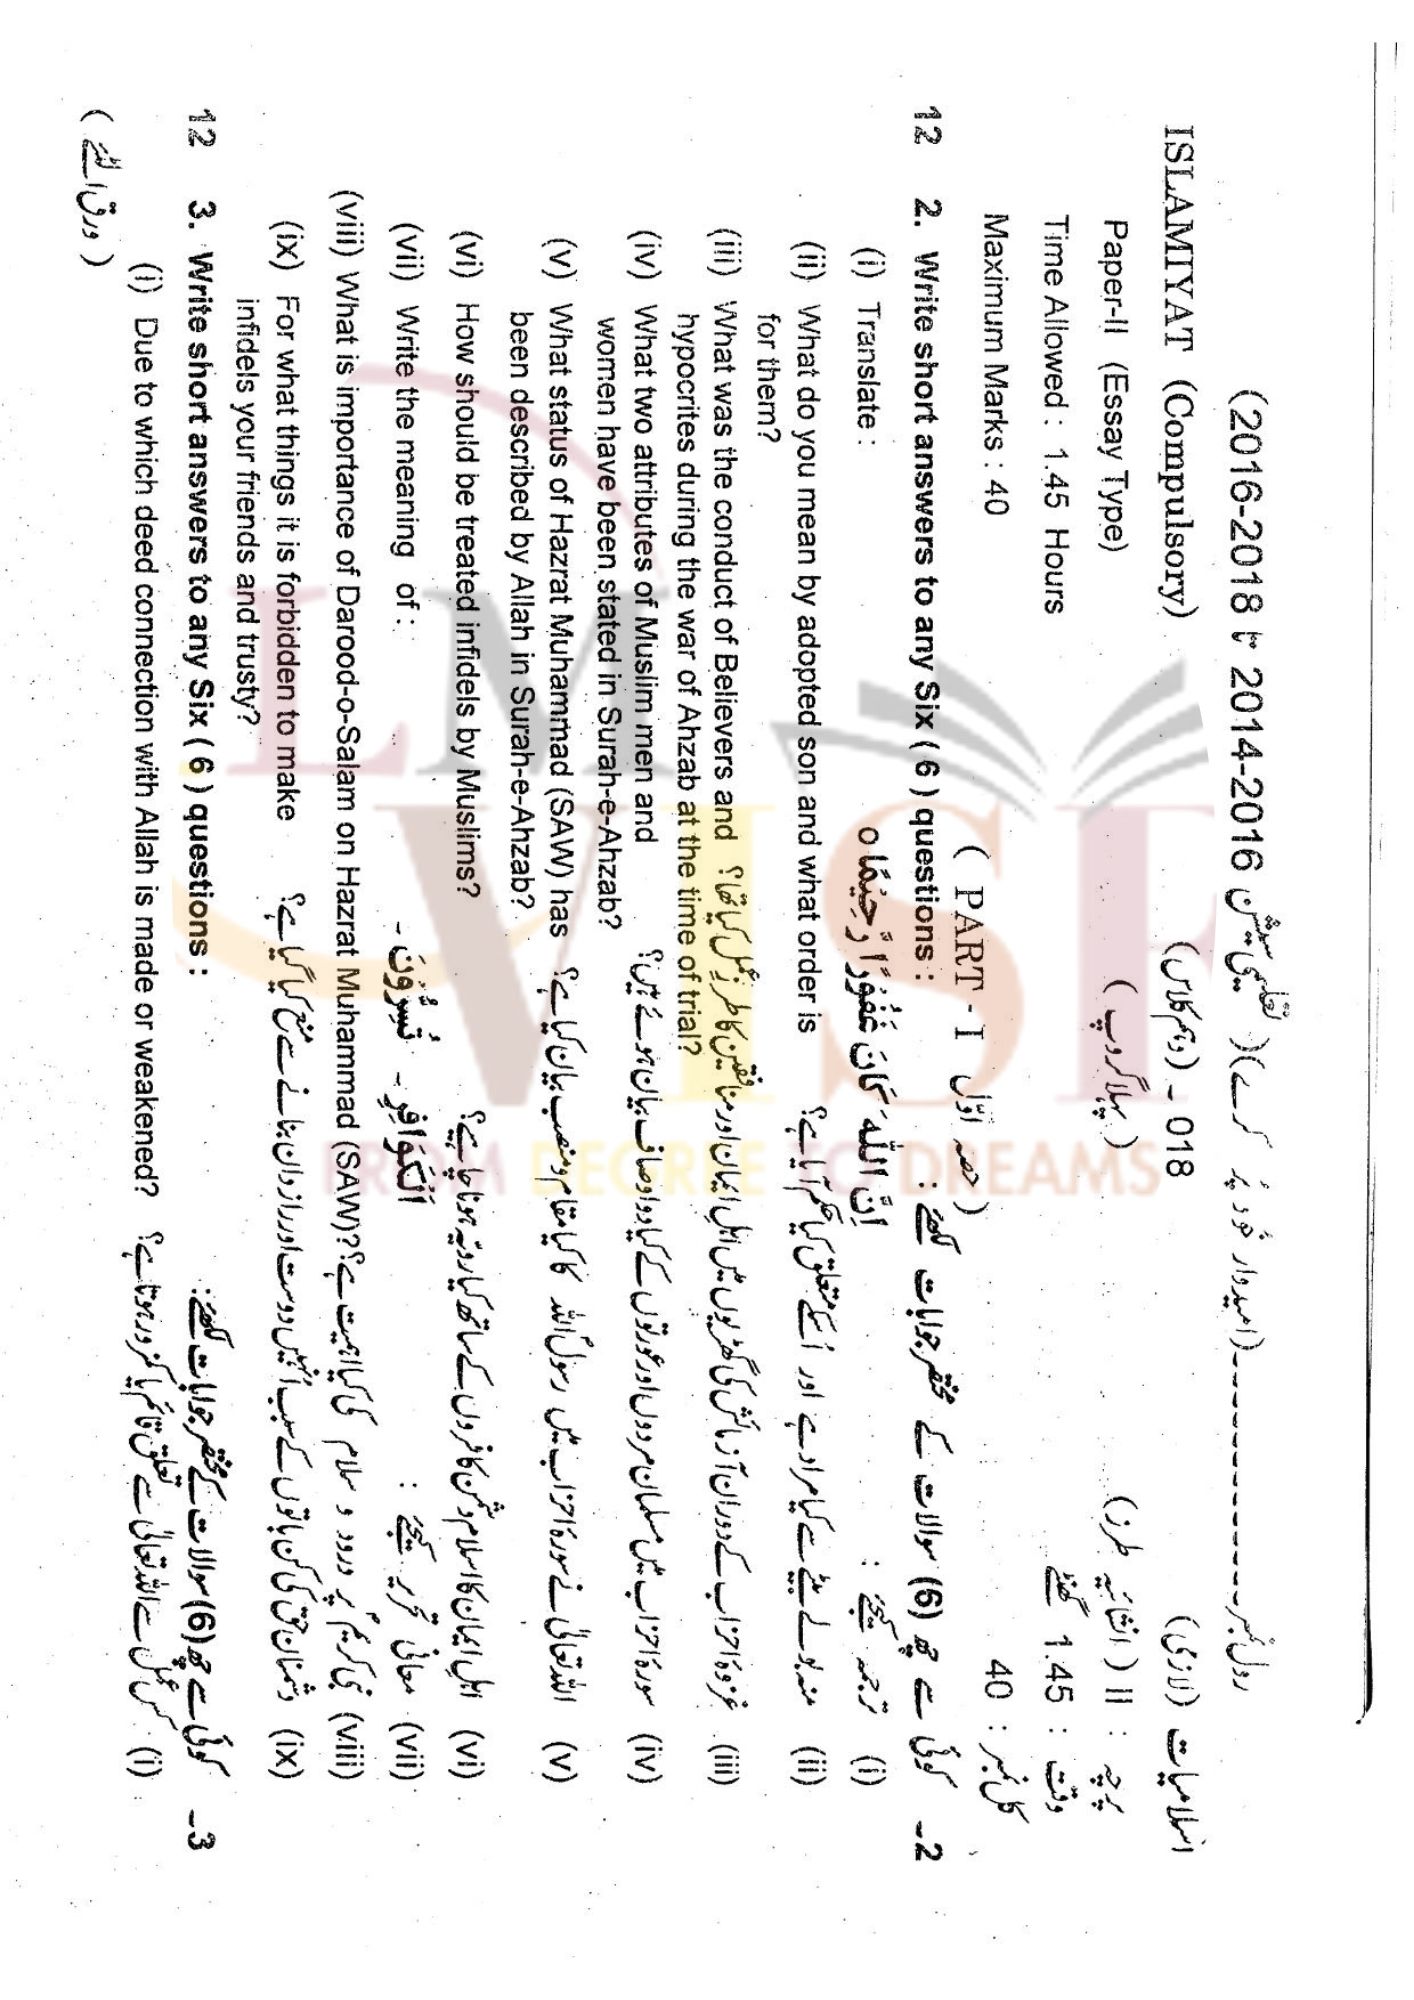 رول نمبر (امیدوار خود پُر کرے) (تعلیمی سیشن 2014-2016 تا 2016-2018)
ISLAMIYAT (Compulsory) 018 - (دہم کلاس) اسلامیات (لازمی)
Paper-II (Essay Type) (پہلا گروپ) پرچہ : II (انشائیہ طرز)
Time Allowed : 1.45 Hours وقت : 1.45 گھنٹے
Maximum Marks : 40 کل نمبر : 40
( PART - I حصہ اوّل )
12 2. Write short answers to any Six ( 6 ) questions : 2- کوئی سے چھ (6) سوالات کے مختصر جوابات لکھئے :
(i) Translate : اِنَّ اللّٰهَ كَانَ غَفُوْرًا رَّحِيْمًا o (i) ترجمہ کیجئے :
(ii) What do you mean by adopted son and what order is (ii) منہ بولے بیٹے سے کیا مراد ہے اور اُسکے متعلق کیا حکم آیا ہے؟
for them?
(iii) What was the conduct of Believers and (iii) غزوہ احزاب کے دوران آزمائش کی گھڑیوں میں اہلِ ایمان اور منافقین کا طرزِ عمل کیا تھا؟
hypocrites during the war of Ahzab at the time of trial?
(iv) What two attributes of Muslim men and (iv) سورۃ احزاب میں مسلمان مردوں اور عورتوں کے کیا دو اوصاف بیان ہوئے ہیں؟
women have been stated in Surah-e-Ahzab?
(v) What status of Hazrat Muhammad (SAW) has (v) اللہ تعالیٰ نے سورۃ احزاب میں رسول اللہ کا کیا مقام و منصب بیان کیا ہے؟
been described by Allah in Surah-e-Ahzab?
(vi) How should be treated infidels by Muslims? (vi) اہلِ ایمان کا اسلام دشمن کافروں کے ساتھ کیا رویّہ ہونا چاہیے؟
(vii) Write the meaning of : اَلْكَوَافِرِ - تُسِرُّوْنَ - (vii) معانی تحریر کیجئے :
(viii) What is importance of Darood-o-Salam on Hazrat Muhammad (SAW)? (viii) نبی کریم پر درود و سلام کی کیا اہمیت ہے؟
(ix) For what things it is forbidden to make (ix) دشمنانِ حق کی کن باتوں کے سبب اُنہیں دوست اور رازدان بنانے سے منع کیا گیا ہے؟
infidels your friends and trusty?
12 3. Write short answers to any Six ( 6 ) questions : 3- کوئی سے چھ (6) سوالات کے مختصر جوابات لکھئے :
(i) Due to which deed connection with Allah is made or weakened? (i) کس عمل سے اللہ تعالیٰ سے تعلق قائم یا کمزور ہوتا ہے؟
( ورق الٹئے )
LM
VISP
FROM DEGREE TO DREAMS